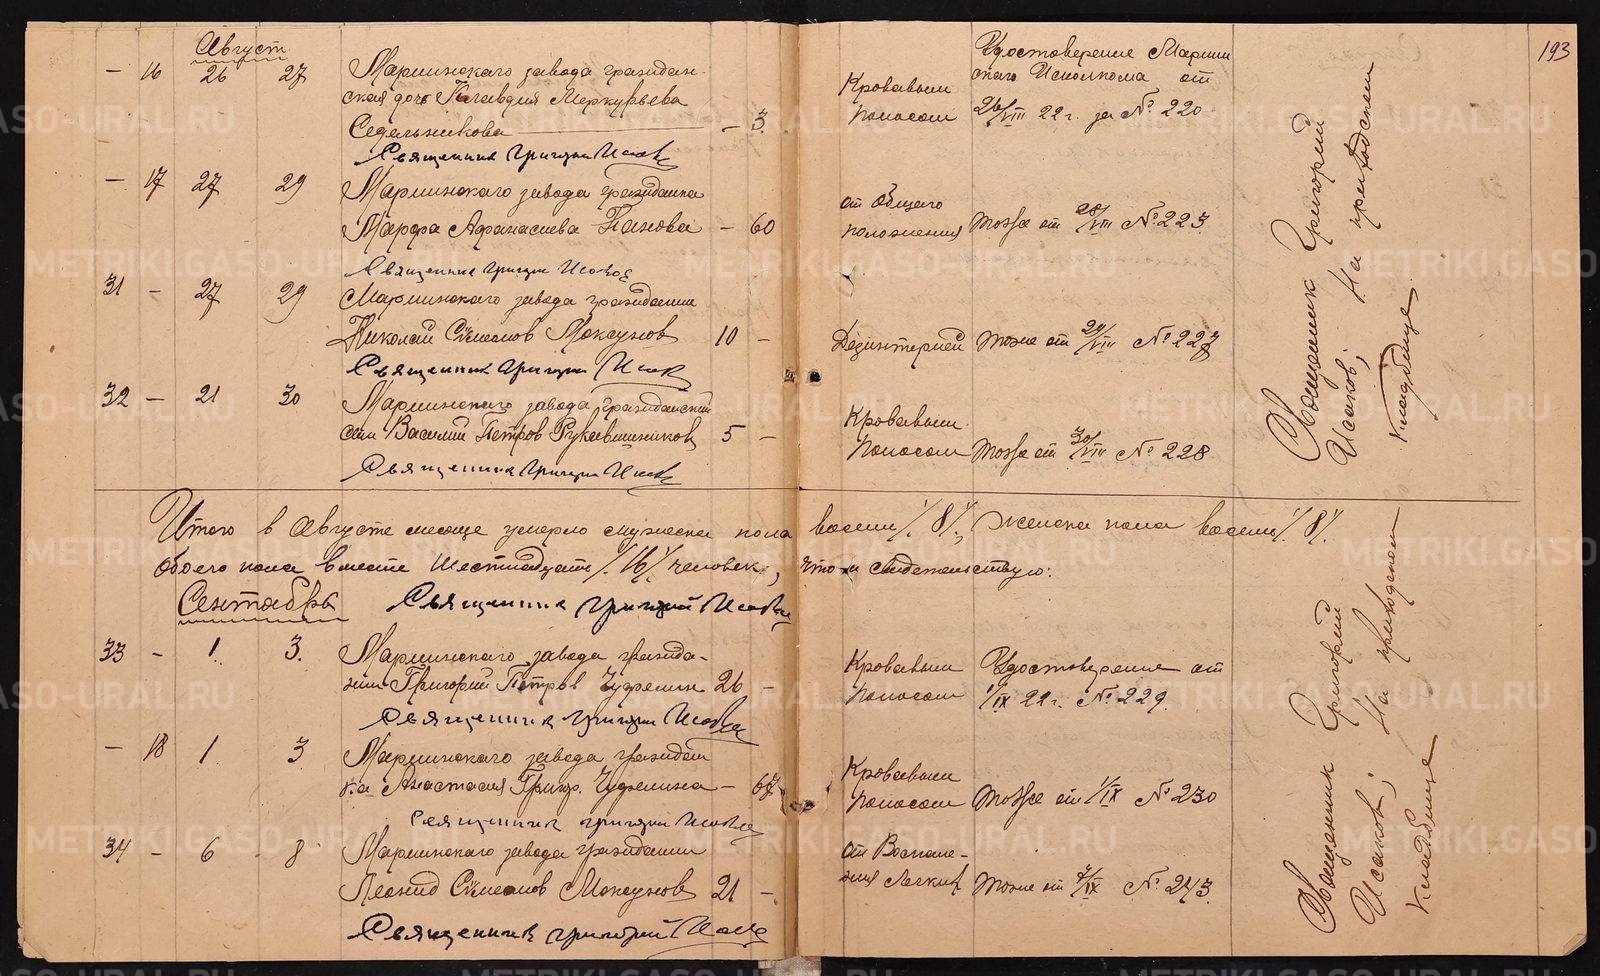 193
Август
— 16 26 27 Мариинскаго завода граждан-
ская дочь Клавдия Меркурьева
Седельникова — 3.
Священник Григорий Исаков
Кровавым
поносом
Удостоверение Мариин
скаго Исполкома от
26/VIII 22 г. за № 220
— 17 27 29 Мариинскаго завода гражданка
Марфа Афанасиева Панова — 60
Священник Григорий Исаков
от Общаго
положения
Тоже от 28/VIII № 223.
31 — 27 29 Мариинскаго завода гражданин
Николай Симеонов Моксунов 10 —
Священник Григорий Исаков
Дезинтерией
Тоже от 29/VIII №
32 — 21 30 Мариинскаго завода гражданский
сын Василий Петров Рукавишников 5 —
Священник Григорий Исаков
Кровавым
поносом
Тоже от 30/VIII № 228
Священник Григорий
Исаков; На приходском
кладбище
Итого в Августе месяце умерло мужеска пола восемь /8/, женска пола восемь /8/.
обоего пола вместе шестнадцать /16/ человек, что и свидетельствую:
Сентябрь Священник Григорий Исаков
33 — 1. 3. Мариинскаго завода гражда-
нин Григорий Петров Чудрелин 26 —
Священник Григорий Исаков
Кровавым
поносом
Удостоверение от
1/IX 22 г. № 229.
— 18 1. 3 Мариинскаго завода граждан
ка Анастасия Григор. Чудрелина — 67
Священник Григорий Исаков
Кровавым
поносом
Тоже от 1/IX № 230
34 — 6 8 Мариинскаго завода гражданин
Леонид Симеонов Моксунов 21 —
Священник Григорий Исаков
от Воспале-
ния Легких
Тоже от 7/IX № 243.
Священник Григорий
Исаков; На приходском
кладбище
METRIKI.GASO-URAL.RU